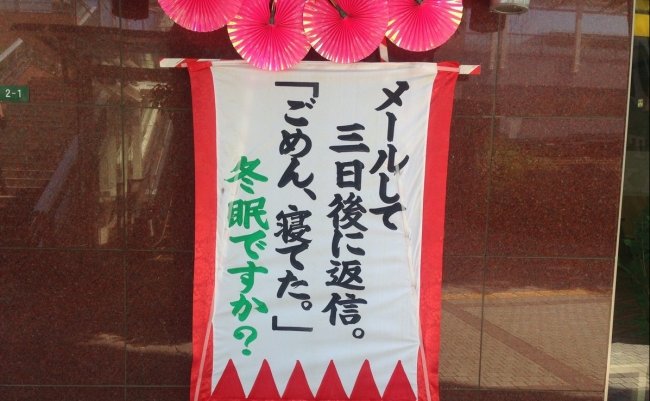 メールして
三日後に返信。
「ごめん、寝てた。」
冬眠ですか?
2-1